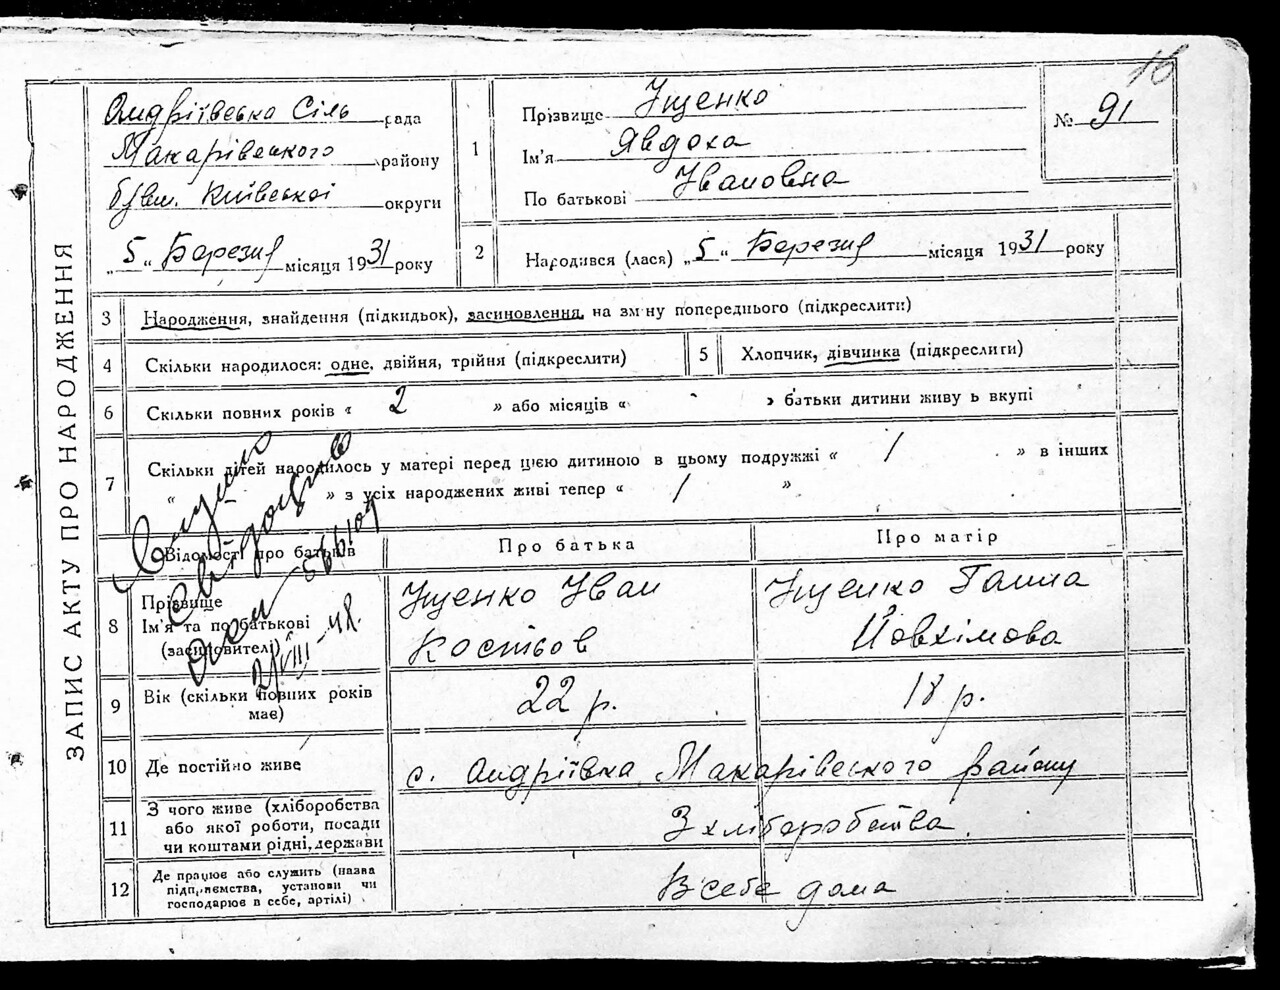 16
ЗАПИС АКТУ ПРО НАРОДЖЕННЯ
Андріївська Сіль рада
Макарівського району
бувш. Київської округи
„ 5 “ Березня місяця 1931 року
1
Прізвище Іщенко
Ім'я Явдоха
По батькові Івановна
№ 91
2
Народився (лася) „ 5 “ Березня місяця 1931 року
3 Народження, знайдення (підкидьок), засиновлення, на зміну попереднього (підкреслити)
4 Скільки народилося: одне, двійня, трійня (підкреслити)
5 Хлопчик, дівчинка (підкреслити)
6 Скільки повних років « 2 » або місяців « - » батьки дитини живуть вкупі
7 Скільки дітей народилось у матері перед цією дитиною в цьому подружжі « 1 » в інших
« » з усіх народжених живі тепер « 1 »
Відомості про батьків
Про батька
Про матір
8 Прізвище
Ім'я та по батькові
(засиновителі)
Іщенко Іван
Костьов
Іщенко Ганна
Йовхімова
9 Вік (скільки повних років
має)
22 р.
18 р.
10 Де постійно живе
с. Андріївка, Макарівського району
11 З чого живе (хліборобства
або якої роботи, посади
чи коштами рідні, держави
З хліборобства
12 Де працює або служить (назва
підприємства, установи чи
господарює в себе, артілі)
В себе дома
21/VIII-48.